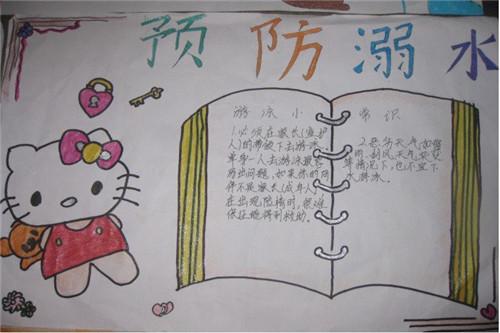 预防溺水
游泳小常识
1.必须在家长(监护
人)的带领下去游泳。
单身一人去游泳最容
易出问题,如果你的同
伴不是家长(成年人)
在出现险情时,很难
保证能得到救助。
2.恶劣天气,如雷
雨、刮风、天气突变
等情况下,也不宜下
水游泳。